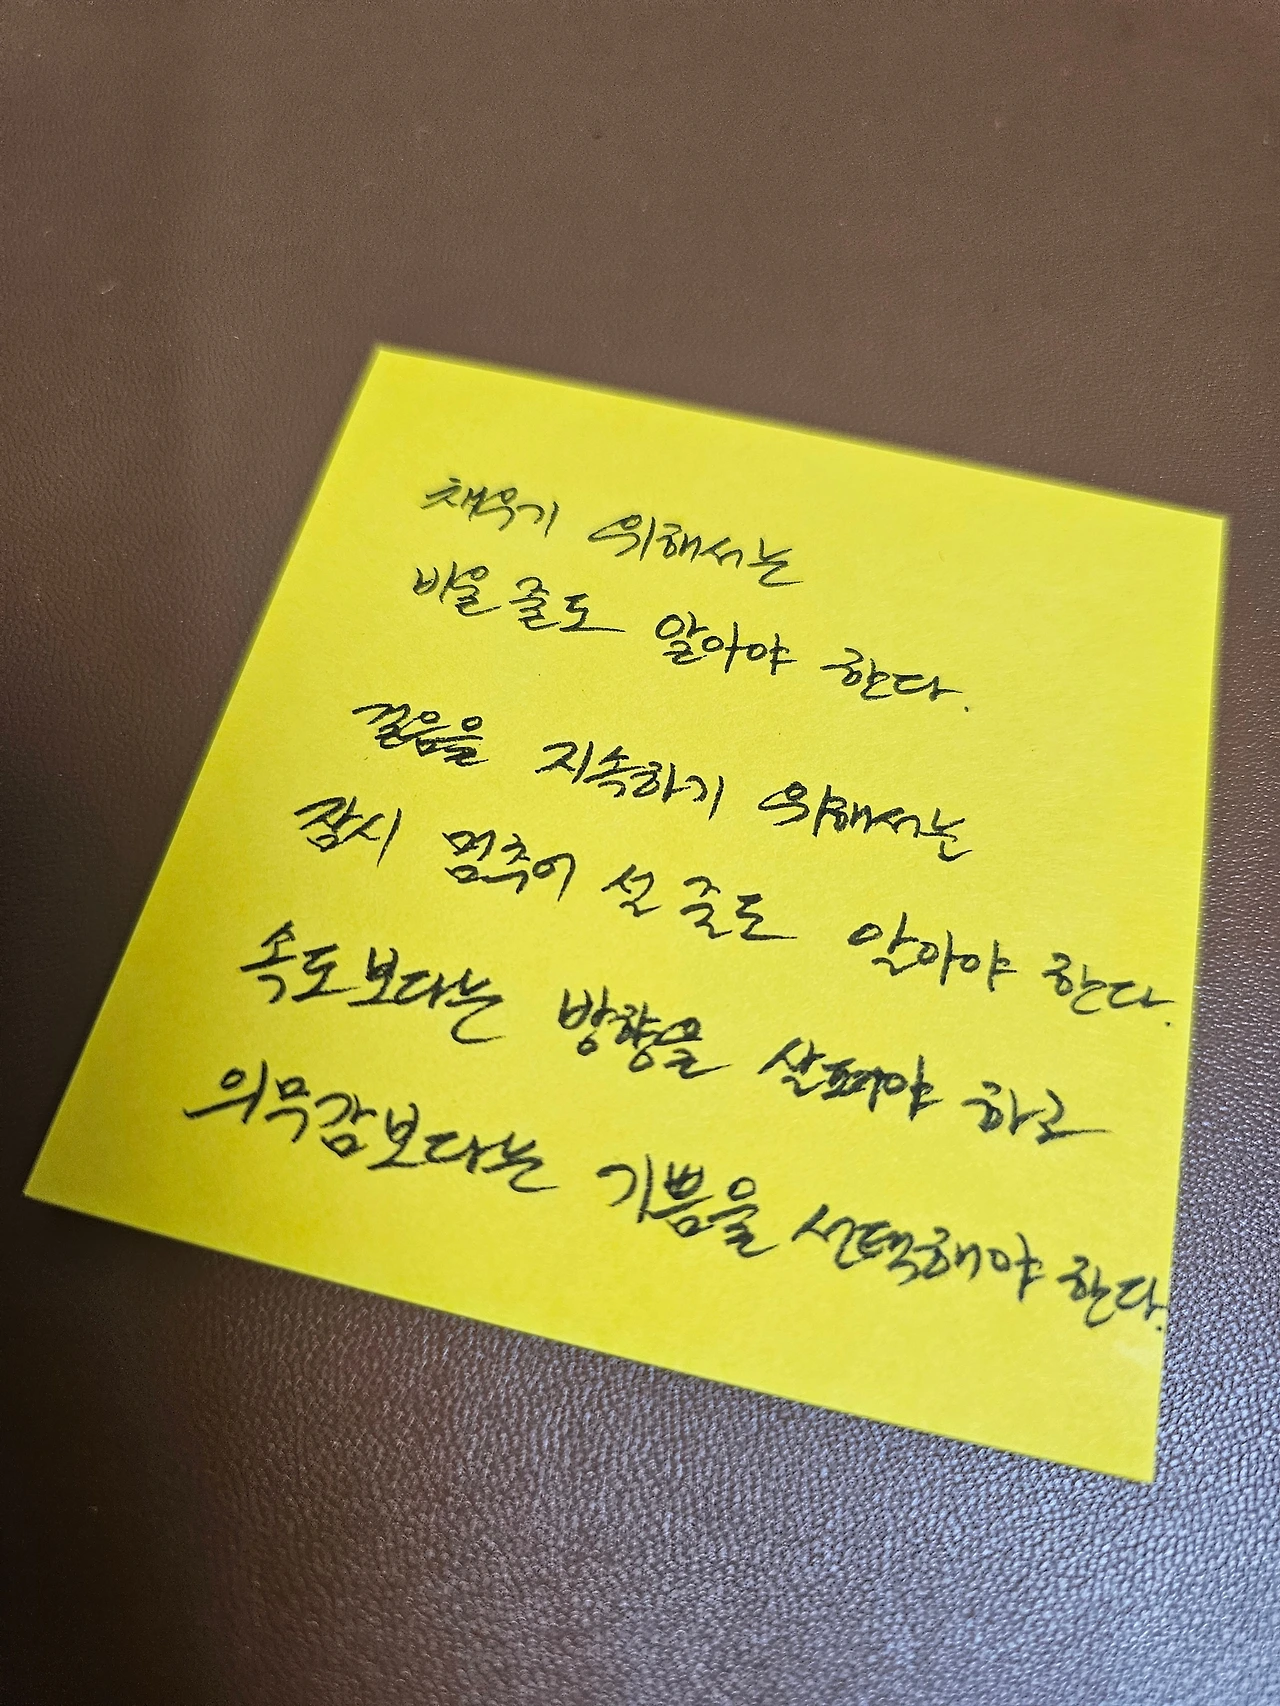 채우기 위해서는
비울 줄도 알아야 한다.
걸음을 지속하기 위해서는
잠시 멈추어 설 줄도 알아야 한다.
속도보다는 방향을 살펴야 하고
의무감보다는 기쁨을 선택해야 한다.